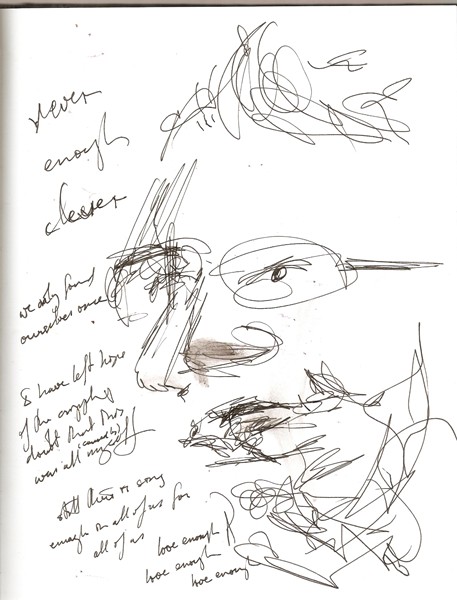 never
enough
closer
we only found
ourselves once
I have left hope
of the
doubt that this
was all myself
song
enough in all of us for
all of us
love enough
love enough
love enough